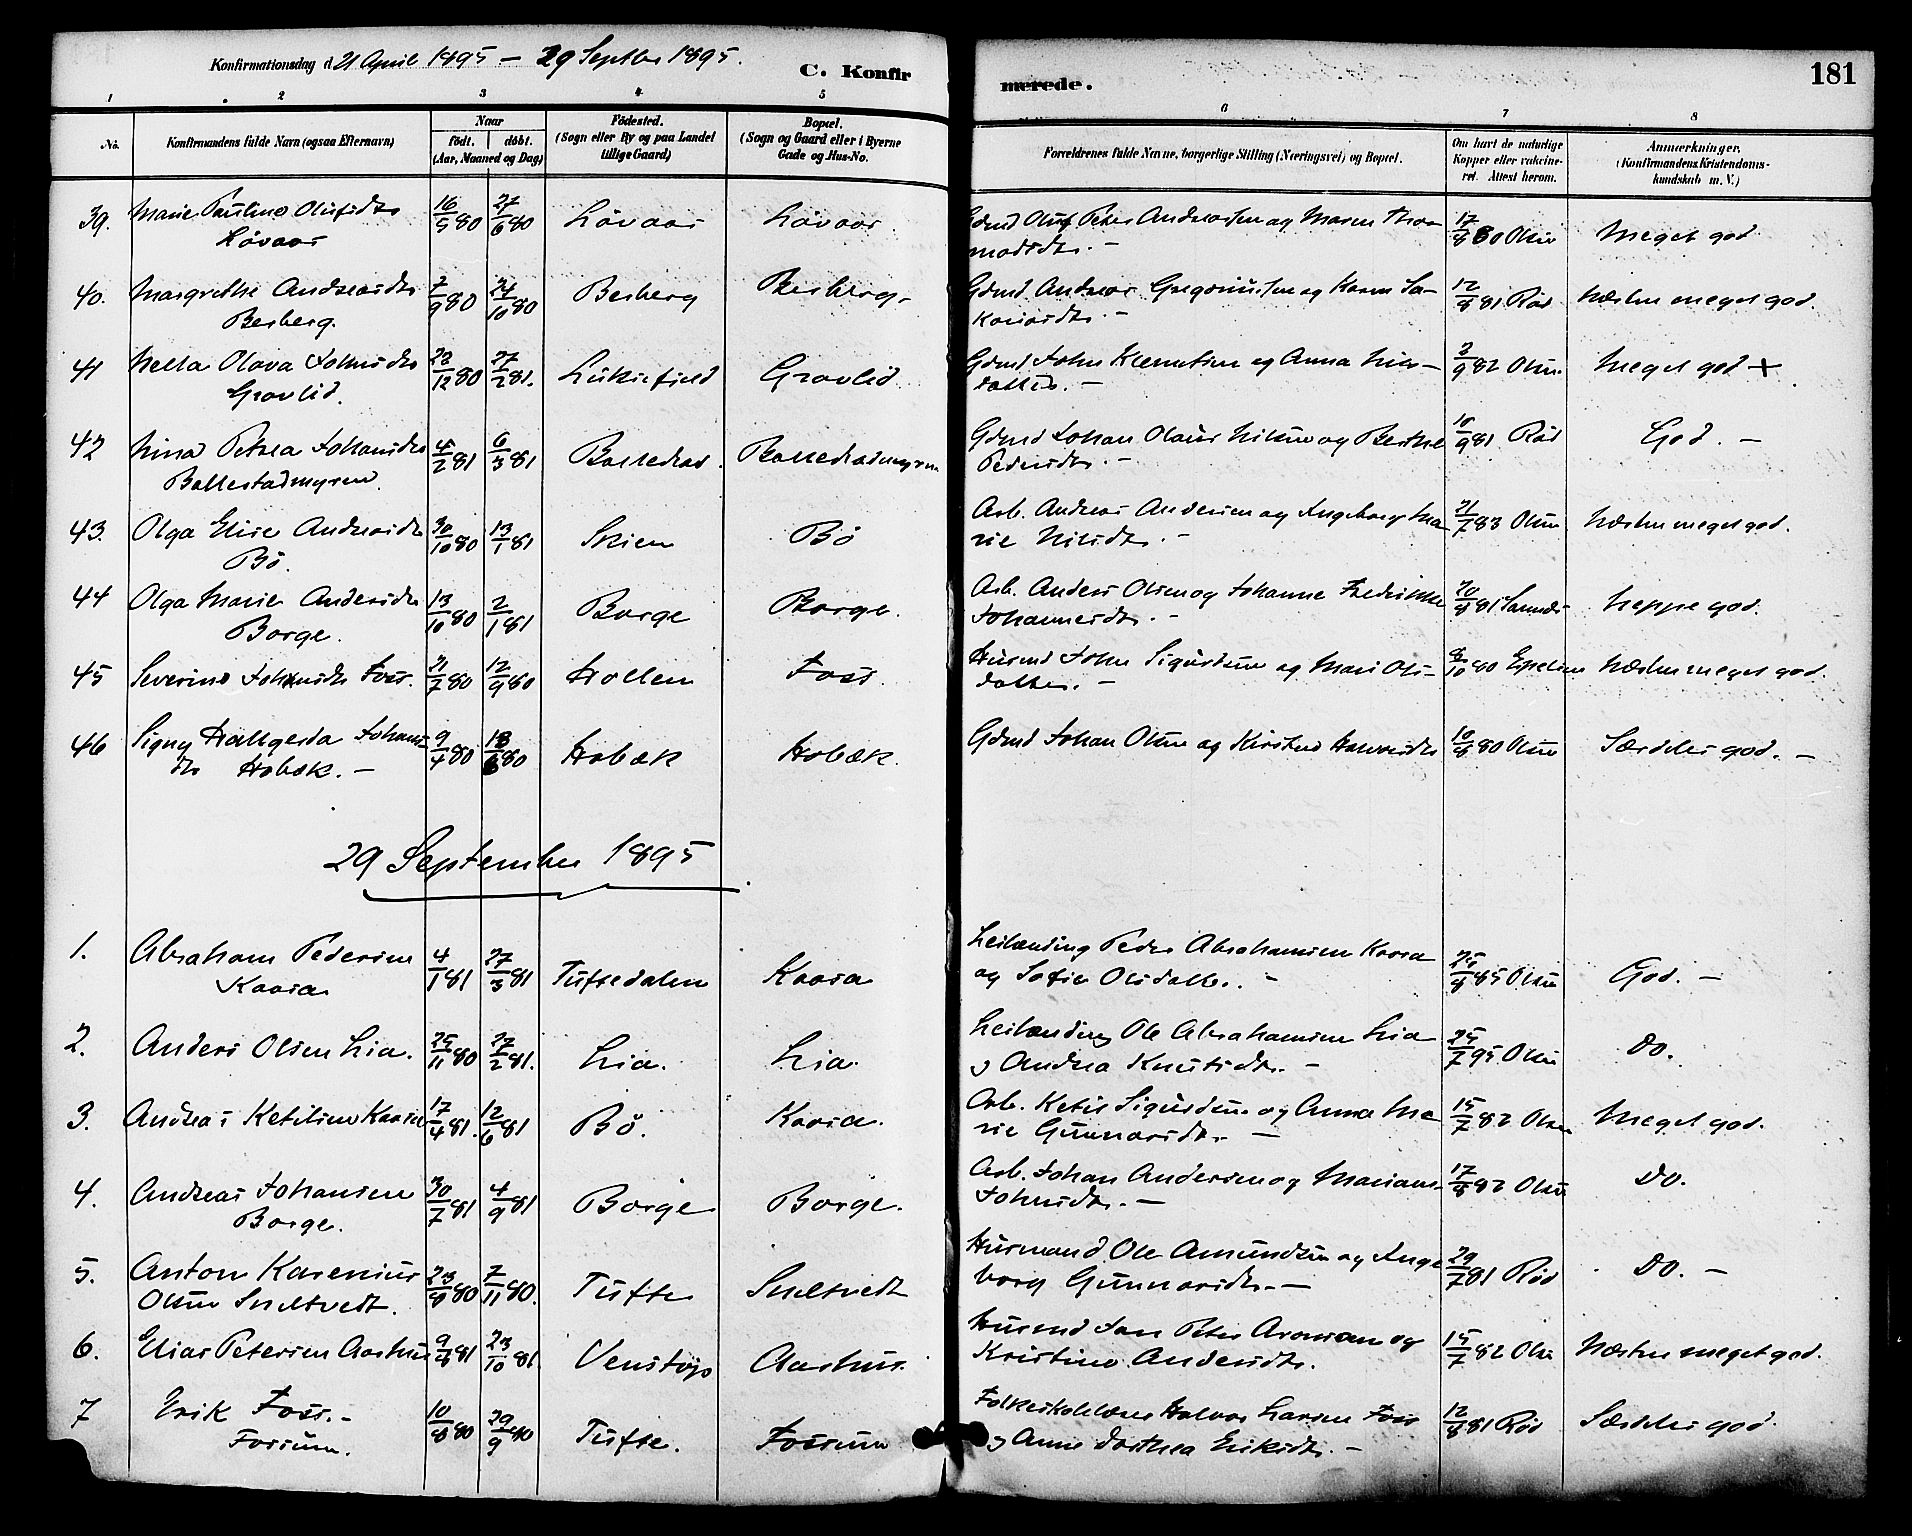 Konfirmationsdag d. 21 April 1895 — 29 Septbr 1895.
C. Konfirmerede.
181
1 2 3 4 5 6 7 8
No. Konfirmandens fulde Navn (ogsaa Efternavn) Naar født. døbt. (Aar, Maaned og Dag) Fødested. (Sogn eller By og paa Landet tillige Gaard) Bopæl. (Sogn og Gaard eller i Byerne Gade og Hus-No. Forældrenes fulde Navne, borgerlige Stilling (Næringsvei) og Bopæl. Om havt de naturlige Kopper eller vakcineret. Attest herom. Anmærkninger. (Konfirmandens Kristendomskundskab m. V.)
39. Marie Pauline Olufsdtr 16/5 80 27/6 80 Løvaas Løvaas Gdmd Oluf Peter Andreassen og Maren Thor- 17/8 80 Olsen Meget god
Løvaas modsdtr. —
40. Margrethe Andreasdtr 7/9 80 24/10 80 Besberg Besberg Gdmd Andreas Gregoriussen og Karen Za- 12/8 81 Rød Næsten meget god.
Besberg. kariasdtr. —
41 Nella Olava Johnsdtr 23/12 80 27/2 81. Luksefjeld Gravlid Gdmd John Klemetsen og Anna Niels- 3/9 82 Olsen Meget god +
Gravlid. datter. —
42 Nina Petrea Johansdtr 4/2 81 6/3 81 Ballestad. Ballestadmyren Gdmd Johan Olaus Nilsen og Berthe 10/9 81 Rød God. —
Ballestadmyren. Pedersdtr. —
43. Olga Elise Andreasdtr 30/10 80 13/1 81 Skien Bø Arb. Andreas Andersen og Ingeborg Ma- 21/7 83 Olsen Næsten meget god.
Bø. rie Nilsdtr. —
44 Olga Marie Andersdtr 13/10 80 2/1 81 Borge Borge. Arb. Anders Olsen og Johanne Fredrikke 20/8 81 Neppe god.
Borge. Johannesdtr. —
45 Severine Johnsdtr Foss. 21/7 80 12/9 80 Hollen Foss. Husmd John Sigurdsen og Mari Ols- 8/10 80 Næsten meget god.
datter. —
46 Signy Hallgerda Johans- 9/4 80 13/6 80 Hobæk Hobæk. Gdmd Johan Olsen og Kirstine Halvorsdtr 10/8 80 Olsen Særdeles god. —
dtr Hobæk. —
29 September 1895
1. Abraham Pedersen 4/1 81 27/3 81 Tuftedalen Kaasa Leilænding Peder Abrahamsen Kaasa 25/8 85 Olsen God. —
Kaasa og Sofie Olsdatter. —
2. Anders Olsen Lia. 25/11 80 27/2 81. Lia. Lia. Leilænding Ole Abrahamsen Lia 25/7 95 Olsen Do.
og Andrea Knutsdtr. —
3. Andreas Ketilsen Kaasa 17/4 81. 12/6 81 Bø. Kaasa. Arb. Ketil Sigurdsen og Anna Ma- 15/7 82 Olsen Meget god.
rie Gunnarsdtr. —
4. Andreas Johansen 30/7 81 4/9 81 Borge Borge. Arb. Johan Andersen og Mariane 17/8 82 Olsen Do.
Borge. Johnsdtr. —
5. Anton Karenius 23/8 80 7/11 80. Tufte Sneltvedt Husmand Ole Amundsen og Inge- 29/7 81 Rød Do. —
Olsen Sneltvedt. borg Gunnarsdtr. —
6. Elias Petersen Aarhus 9/8 81 23/10 81. Venstøp Aarhus. Husmd Jan Peter Aronsen og 15/7 82 Olsen Næsten meget god.
Kristine Andersdtr.
7 Erik Foss. — 10/8 80 29/9 80 Tufte. Fossum Folkeskolelærer Halvor Larsen Foss 12/8 81 Rød Særdeles god.
Fossum. og Anne Dorthea Eriksdtr. —